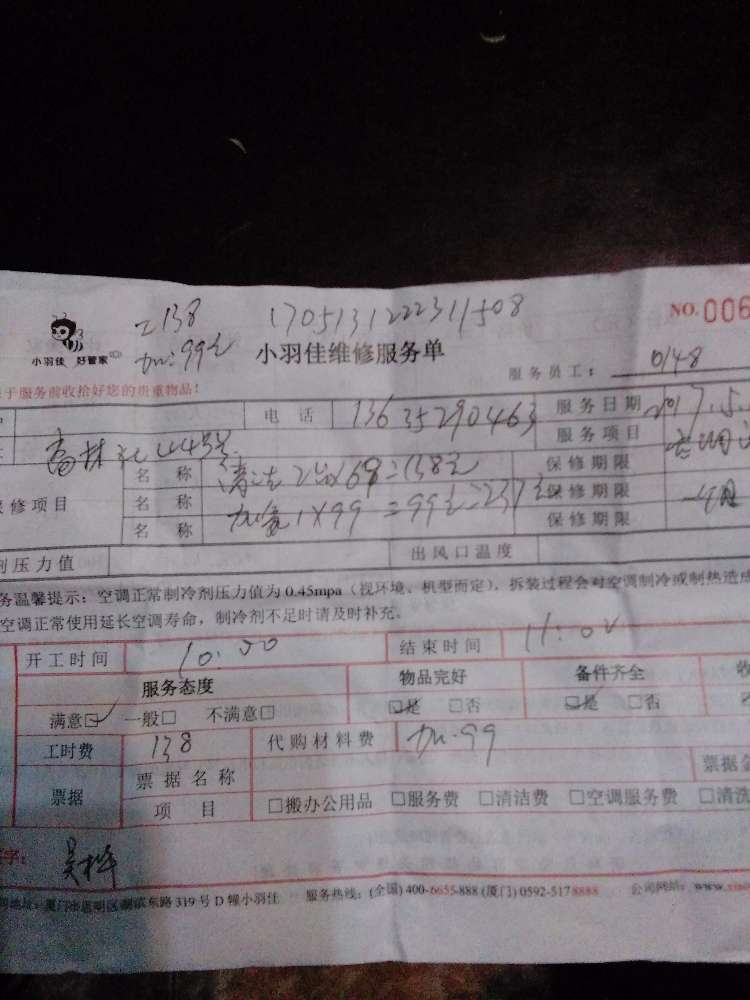 工138 17051312223111508
NO.006
加:99元
小羽佳 好管家
小羽佳维修服务单
服务员工: 0148
于服务前收拾好您的贵重物品!
电 话 13635290463 服务日期 2017.5.
高林 445号 服务项目
名 称 清洗2台×69=138元 保修期限
修项目 名 称 加氟1×99=99元=237元 保修期限 一个月
名 称 保修期限
剂压力值 出风口温度
务温馨提示: 空调正常制冷剂压力值为0.45mpa(视环境、机型而定), 拆装过程会对空调制冷或制热造成
空调正常使用延长空调寿命, 制冷剂不足时请及时补充。
开工时间 10:50 结束时间 11:0
服务态度 物品完好 备件齐全 收
满意☑ 一般□ 不满意□ ☑是 □否 ☑是 □否
工时费 138 代购材料费 加.99
票据 票据名称 票据金
项 目 □搬办公用品 □服务费 □清洁费 □空调服务费 □清洗
字:
地址: 厦门市思明区湖滨东路319号D幢小羽佳 服务热线: (全国)400-6655-888 (厦门)0592-5178888 公司网站: www.xiao